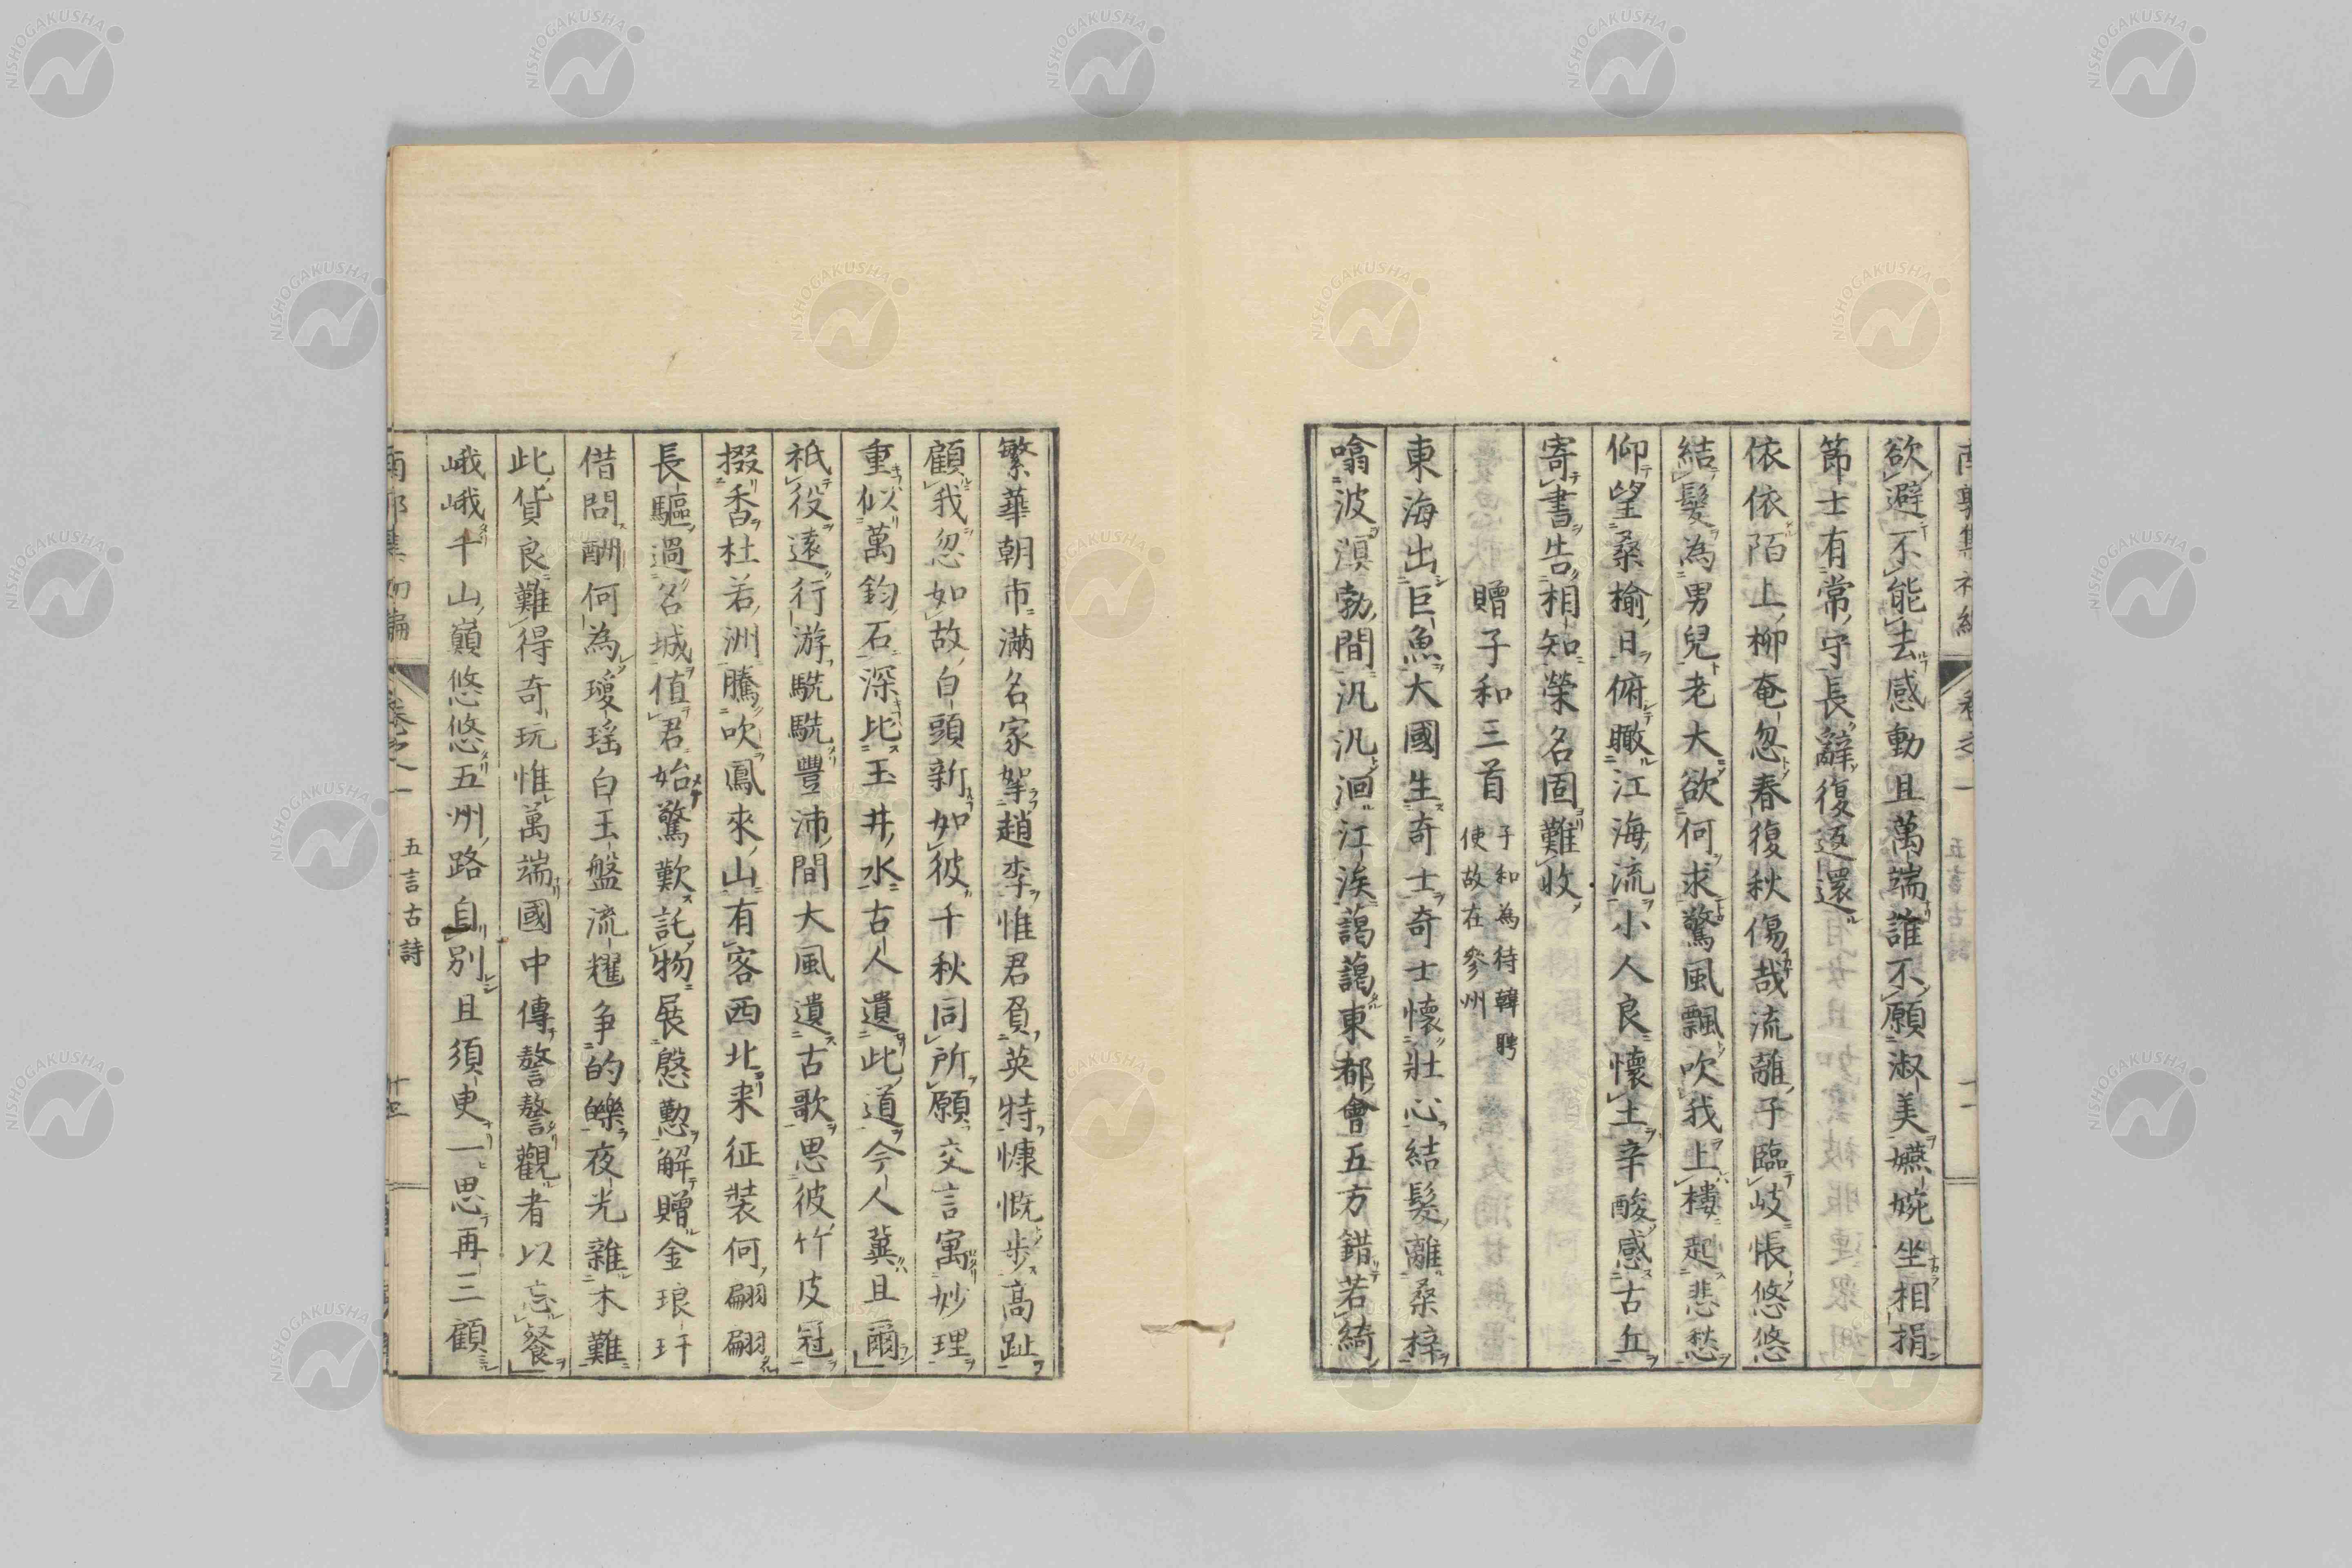 欲避不能去感動且萬端誰不願淑美嬿婉坐相捐
節士有常守長辭復返還
依依陌上柳奄忽春復秋傷哉流離子臨岐悵悠悠
結髮為男兒老大欲何求驚風飄吹我上樓起悲愁
仰望桑榆日俯瞰江海流小人良懷土辛酸感古丘
寄書告相知榮名固難收
贈子和三首
子和為待韓聘
使故在參州
東海出巨魚大國生奇士奇士懷壯心結髮離桑梓
噏波溟勃間汎汎洄江涘藹藹東都會五方錯若綺
繁華朝市滿名家挐趙李惟君負英特慷慨步高趾
顧我忽如故白頭新如彼千秋同所願交言寓妙理
重似萬鈞石深比玉井水古人遺此道今人冀且爾
祇役遠行游駪駪豐沛間大風遺古歌思彼竹皮冠
掇香杜若洲騰吹鳳來山有客西北来征装何翩翩
長驅過名城值君始驚歎託物展慇懃解贈金琅玕
借問酬何為瓊瑶白玉盤流耀争的皪夜光雜木難
此貨良難得奇玩惟萬端國中傳謷謷觀者以忘餐
峨峨千山巔悠悠五州路自別且須臾一思再三顧
南郭集初編 卷之一 五言古詩 十二